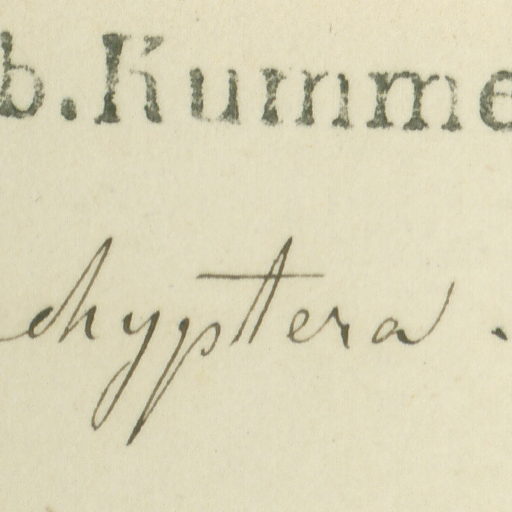 b. Kumme
chyptera.